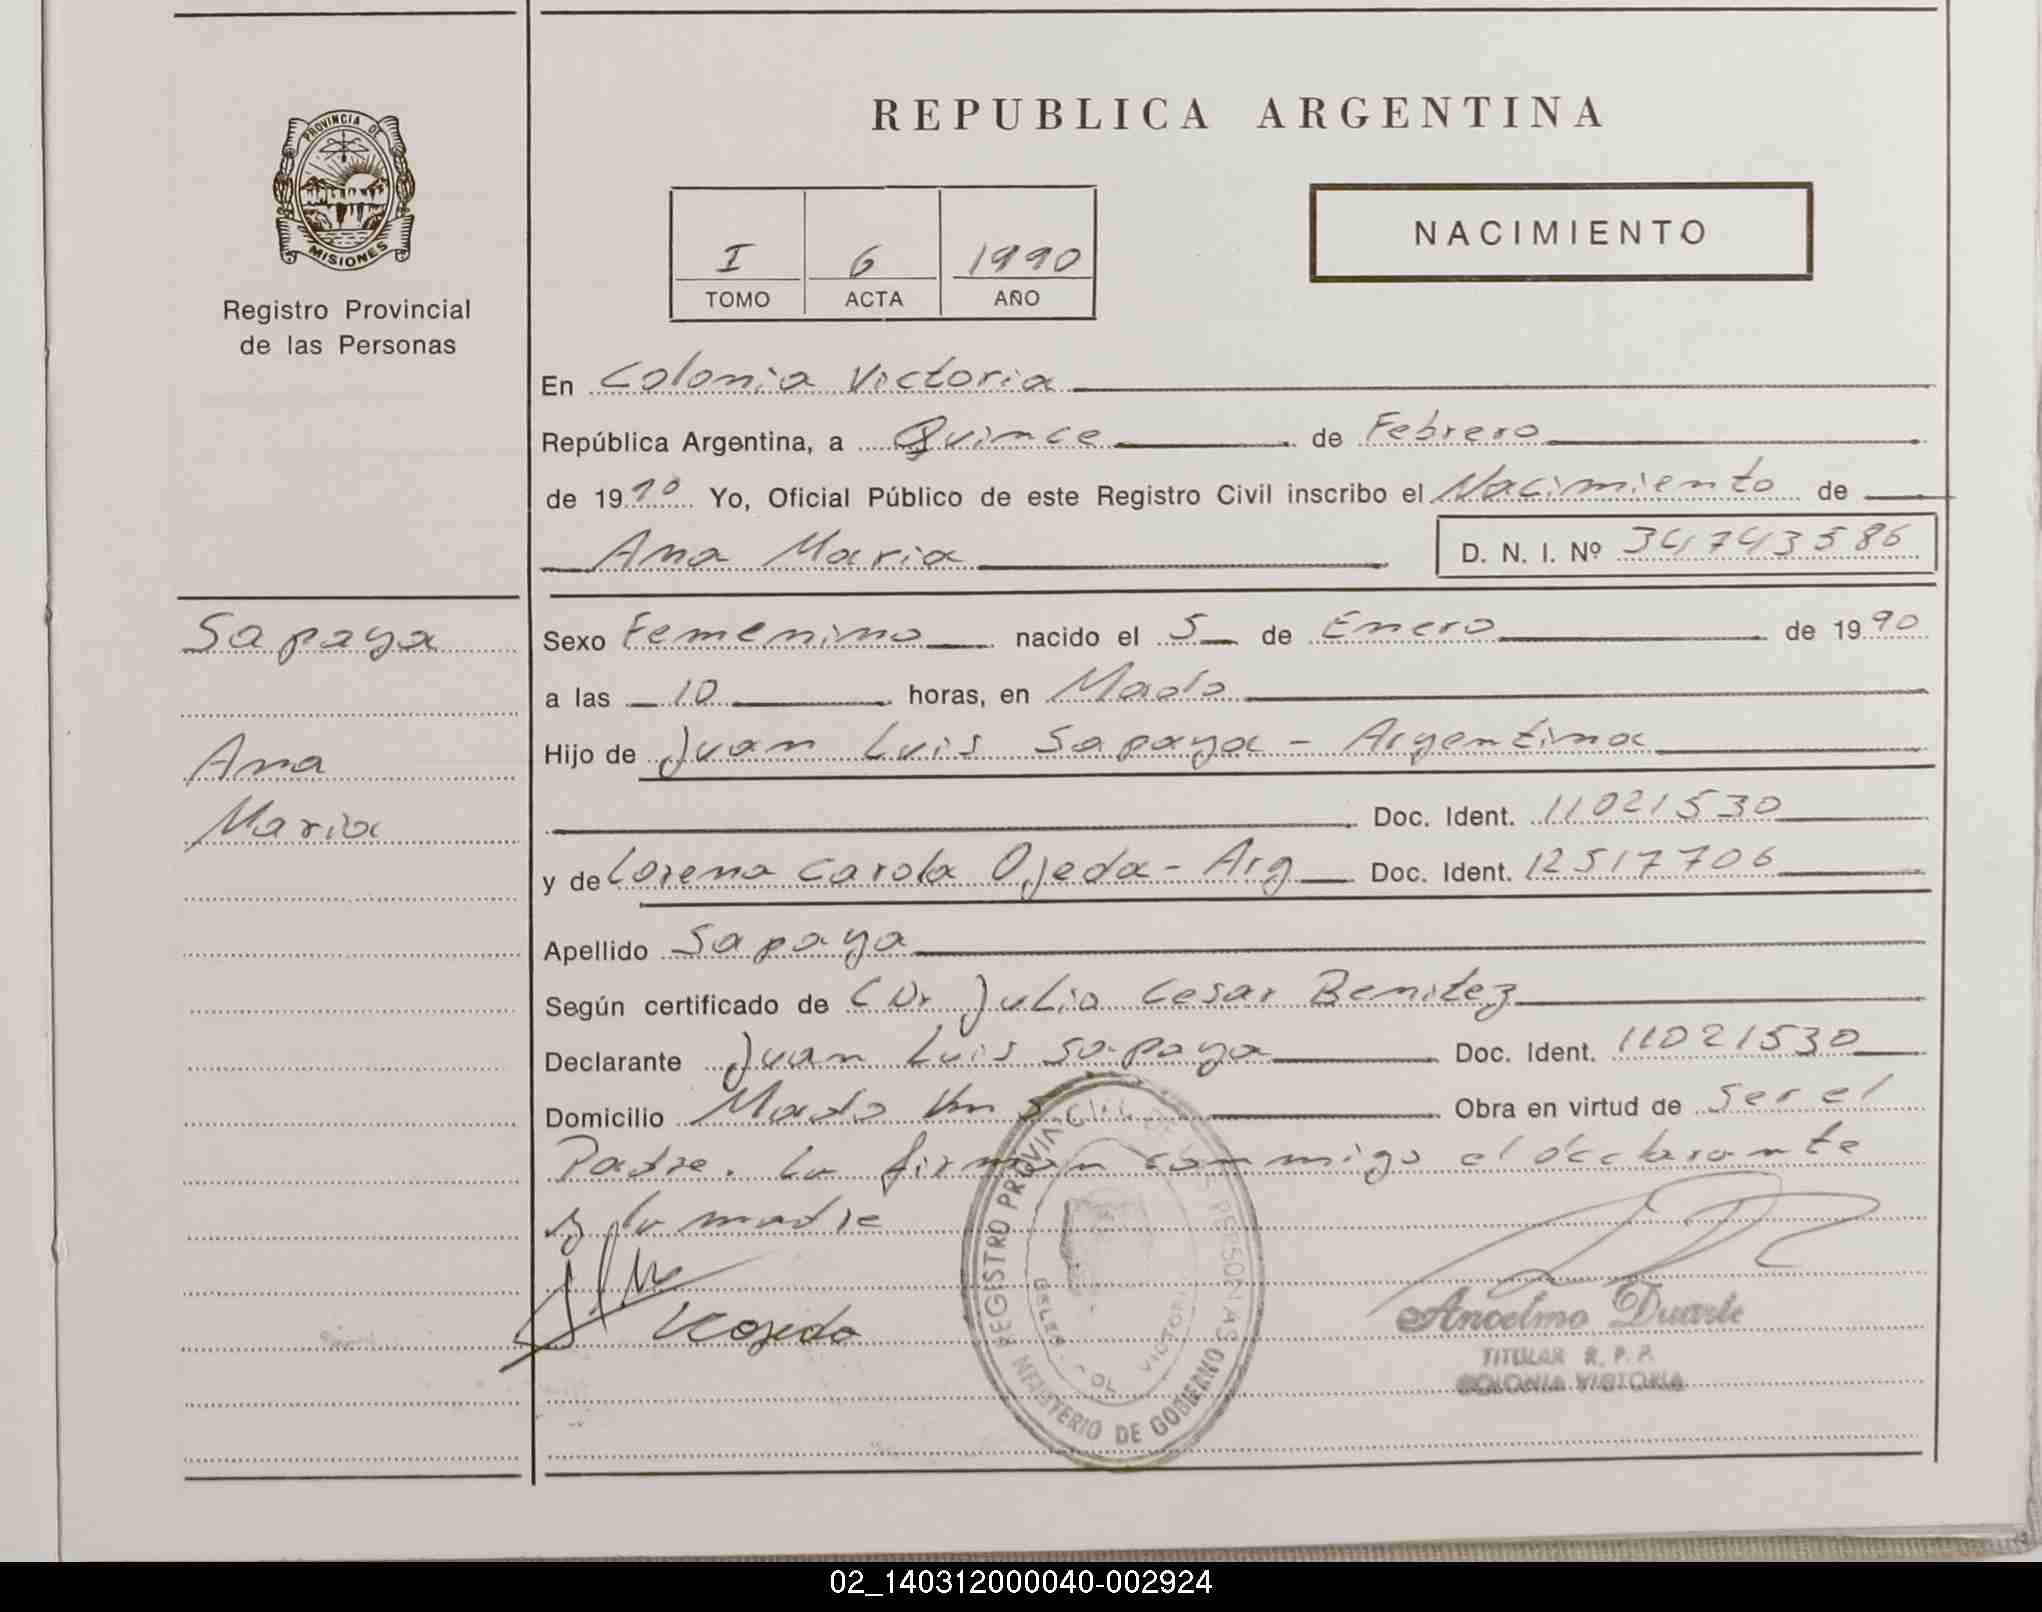 REPUBLICA ARGENTINA
PROVINCIA DE
MISIONES
Registro Provincial
de las Personas
NACIMIENTO
I 6 1990
TOMO ACTA AÑO
En Colonia Victoria
República Argentina, a Quince de Febrero
de 1990 Yo, Oficial Público de este Registro Civil inscribo el Nacimiento de
Ana Maria D. N. I. Nº 34743586
Sapaya
Ana
Maria
Sexo Femenino nacido el 5 de Enero de 1990
a las 10 horas, en Mado
Hijo de Juan Luis Sapaya - Argentina
Doc. Ident. 11021530
y de Lorena Carola Ojeda - Arg Doc. Ident. 12517706
Apellido Sapaya
Según certificado de Dr Julio Cesar Benitez
Declarante Juan Luis Sapaya Doc. Ident. 11021530
Domicilio Mado Km 5 Obra en virtud de ser el
Padre. La firman conmigo el declarante
y la madre
LCOjeda
REGISTRO PROVINCIAL DE LAS PERSONAS
MINISTERIO DE GOBIERNO
Ancelmo Duarte
TITULAR R. P. P.
COLONIA VICTORIA
02_140312000040-002924